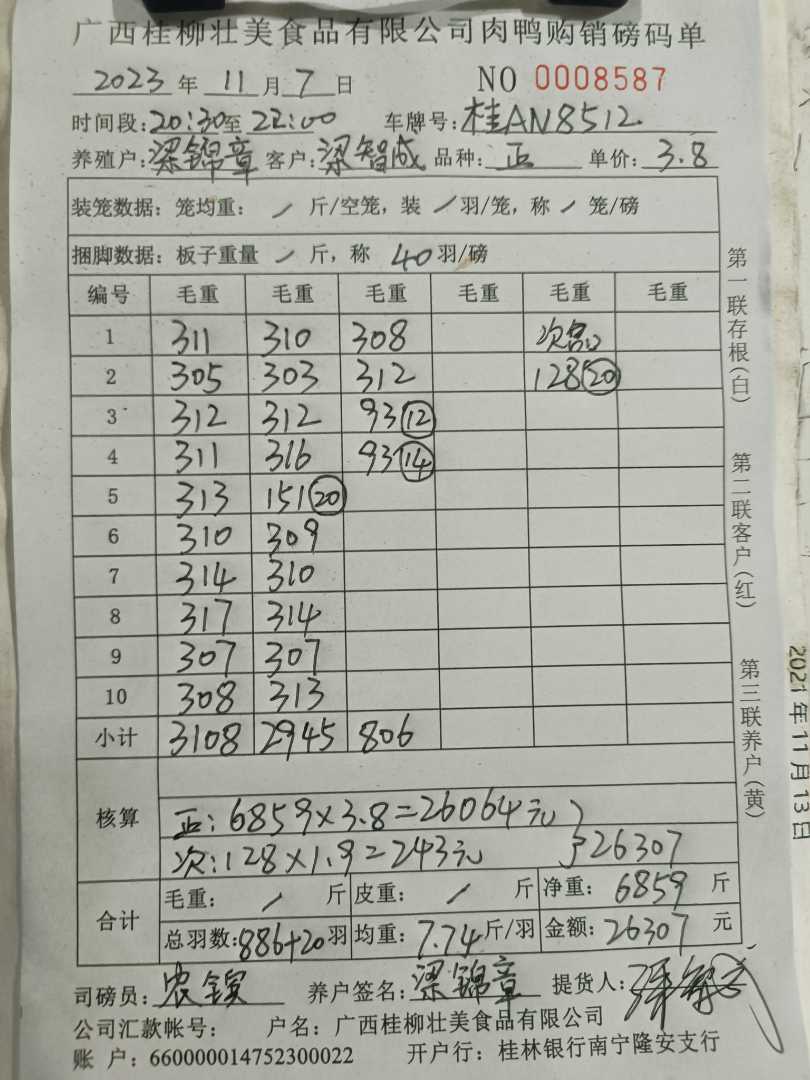 广西桂柳壮美食品有限公司肉鸭购销磅码单
2023 年 11 月 7 日 NO 0008587
时间段: 20:30 至 22:00 车牌号: 桂AN8512
养殖户: 梁锦章 客户: 梁智成 品种: 正 单价: 3.8
装笼数据: 笼均重: / 斤/空笼, 装 / 羽/笼, 称 / 笼/磅
捆脚数据: 板子重量 / 斤, 称 40 羽/磅
编号 毛重 毛重 毛重 毛重 毛重 毛重
1 311 310 308 次品
2 305 303 312 128 20
3 312 312 93 12
4 311 316 93 14
5 313 151 20
6 310 309
7 314 310
8 317 314
9 307 307
10 308 313
小计 3108 2945 806
核算
正: 6859×3.8=26064元
次: 128×1.9=243元 26307
合计
毛重: / 斤 皮重: / 斤 净重: 6859 斤
总羽数: 886+20 羽 均重: 7.74 斤/羽 金额: 26307 元
司磅员: 养户签名: 梁锦章 提货人:
公司汇款帐号: 户名: 广西桂柳壮美食品有限公司
账 户: 660000014752300022 开户行: 桂林银行南宁隆安支行
第一联存根(白)
第二联客户(红)
第三联养户(黄)
2021年11月13日